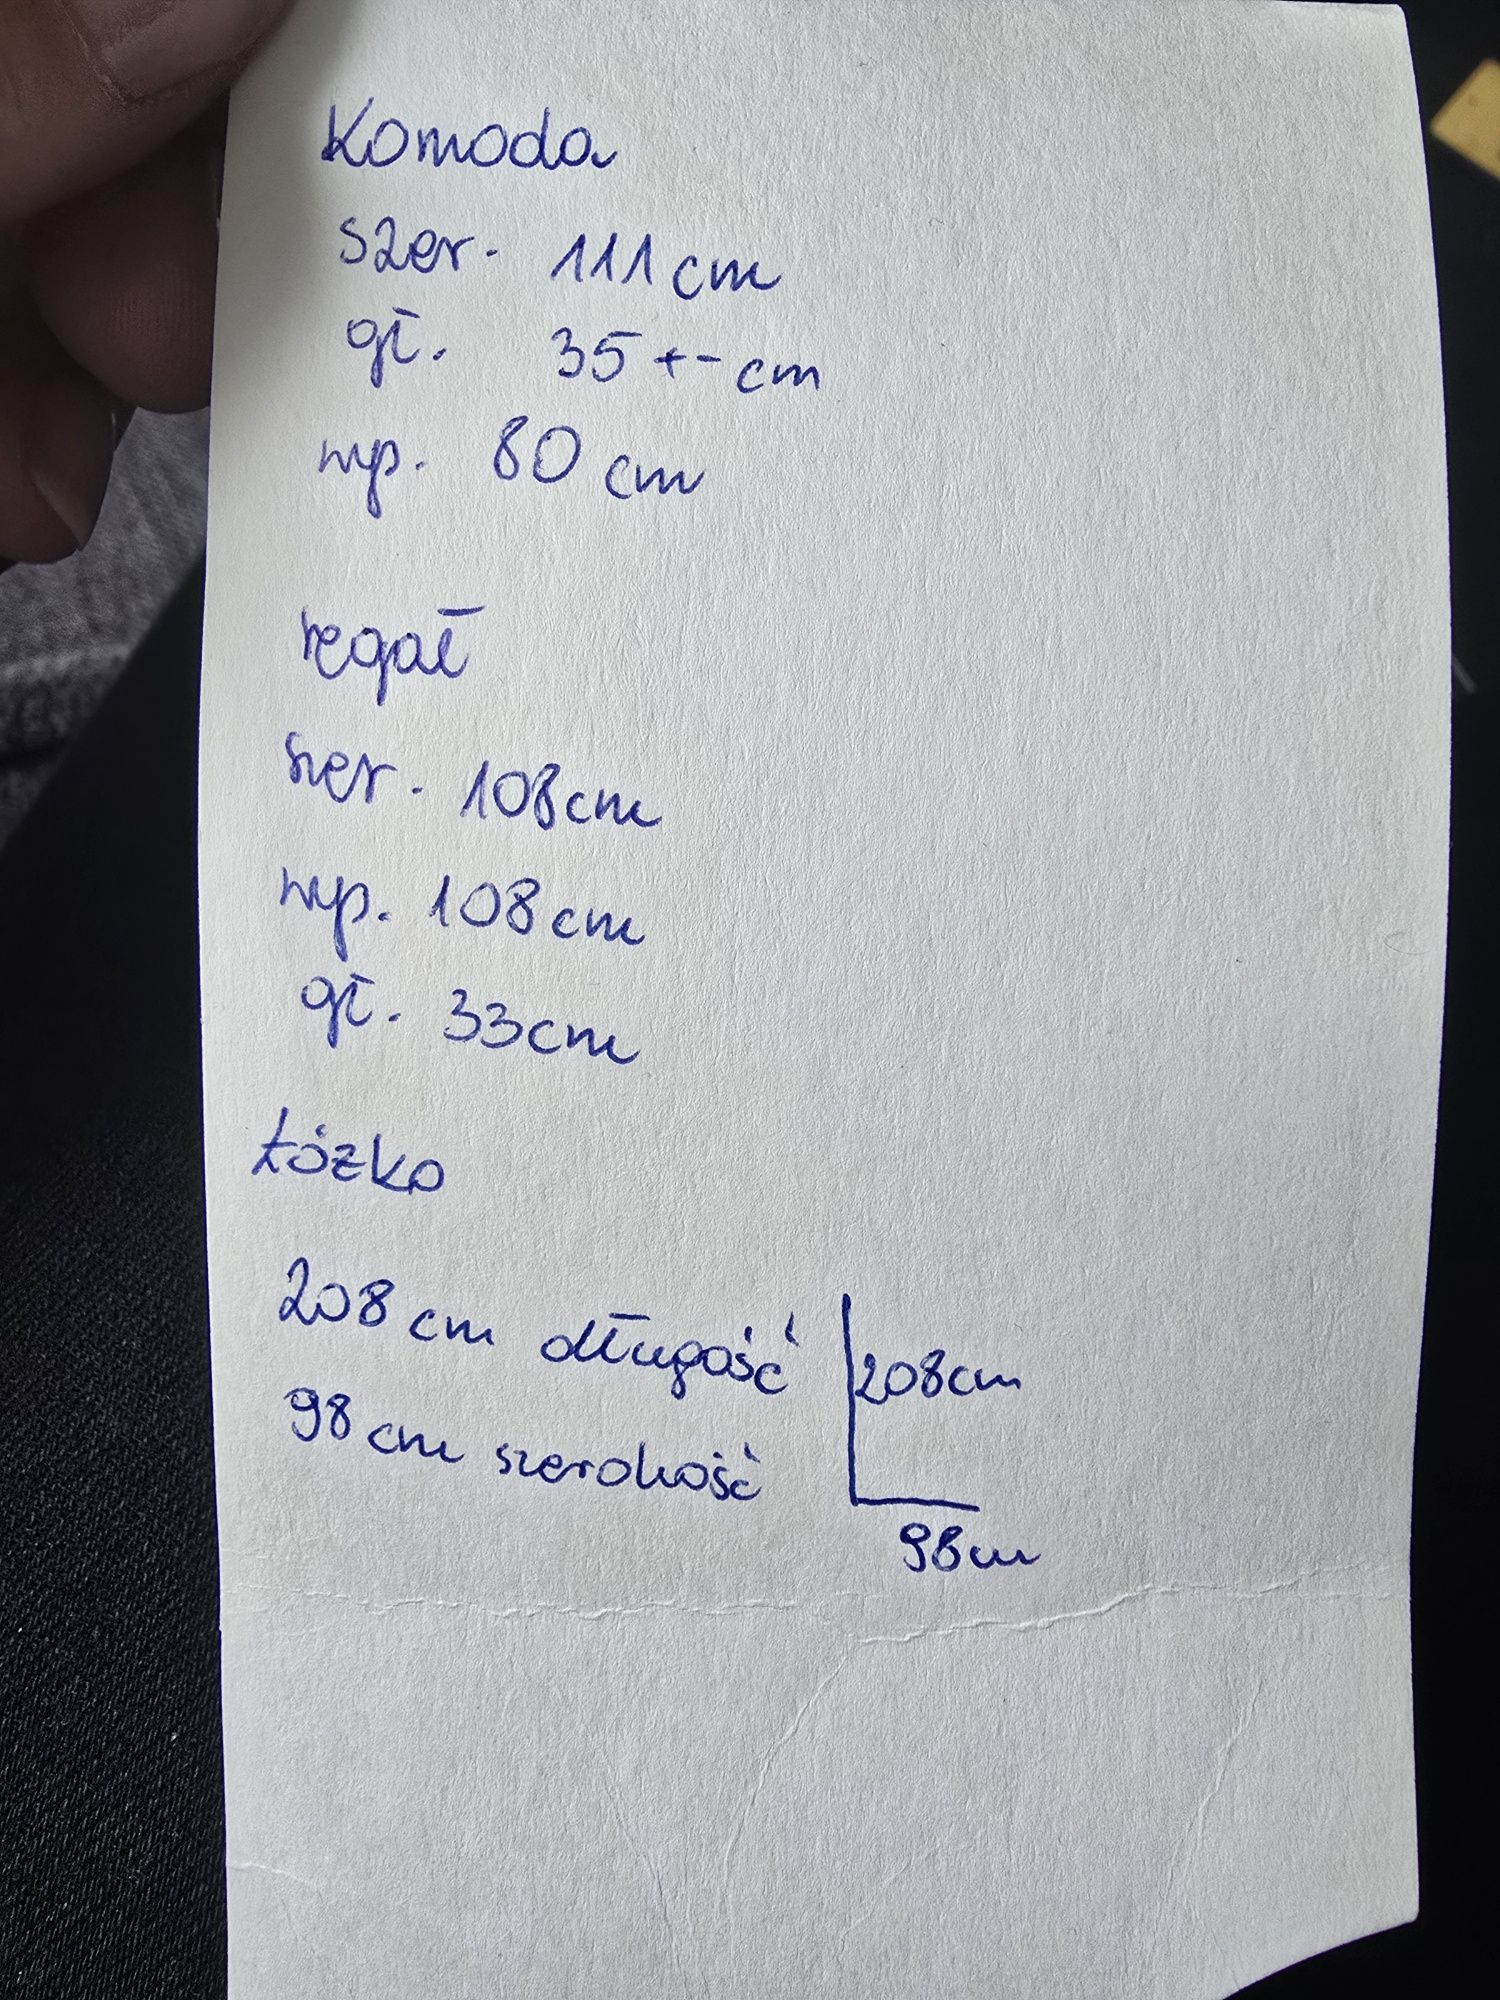 Komoda
szer. 111 cm
gł. 35 +- cm
wys. 80 cm
regał
szer. 108 cm
wys. 108 cm
gł. 33 cm
Łóżko
208 cm długość
208 cm
98 cm szerokość
98 cm